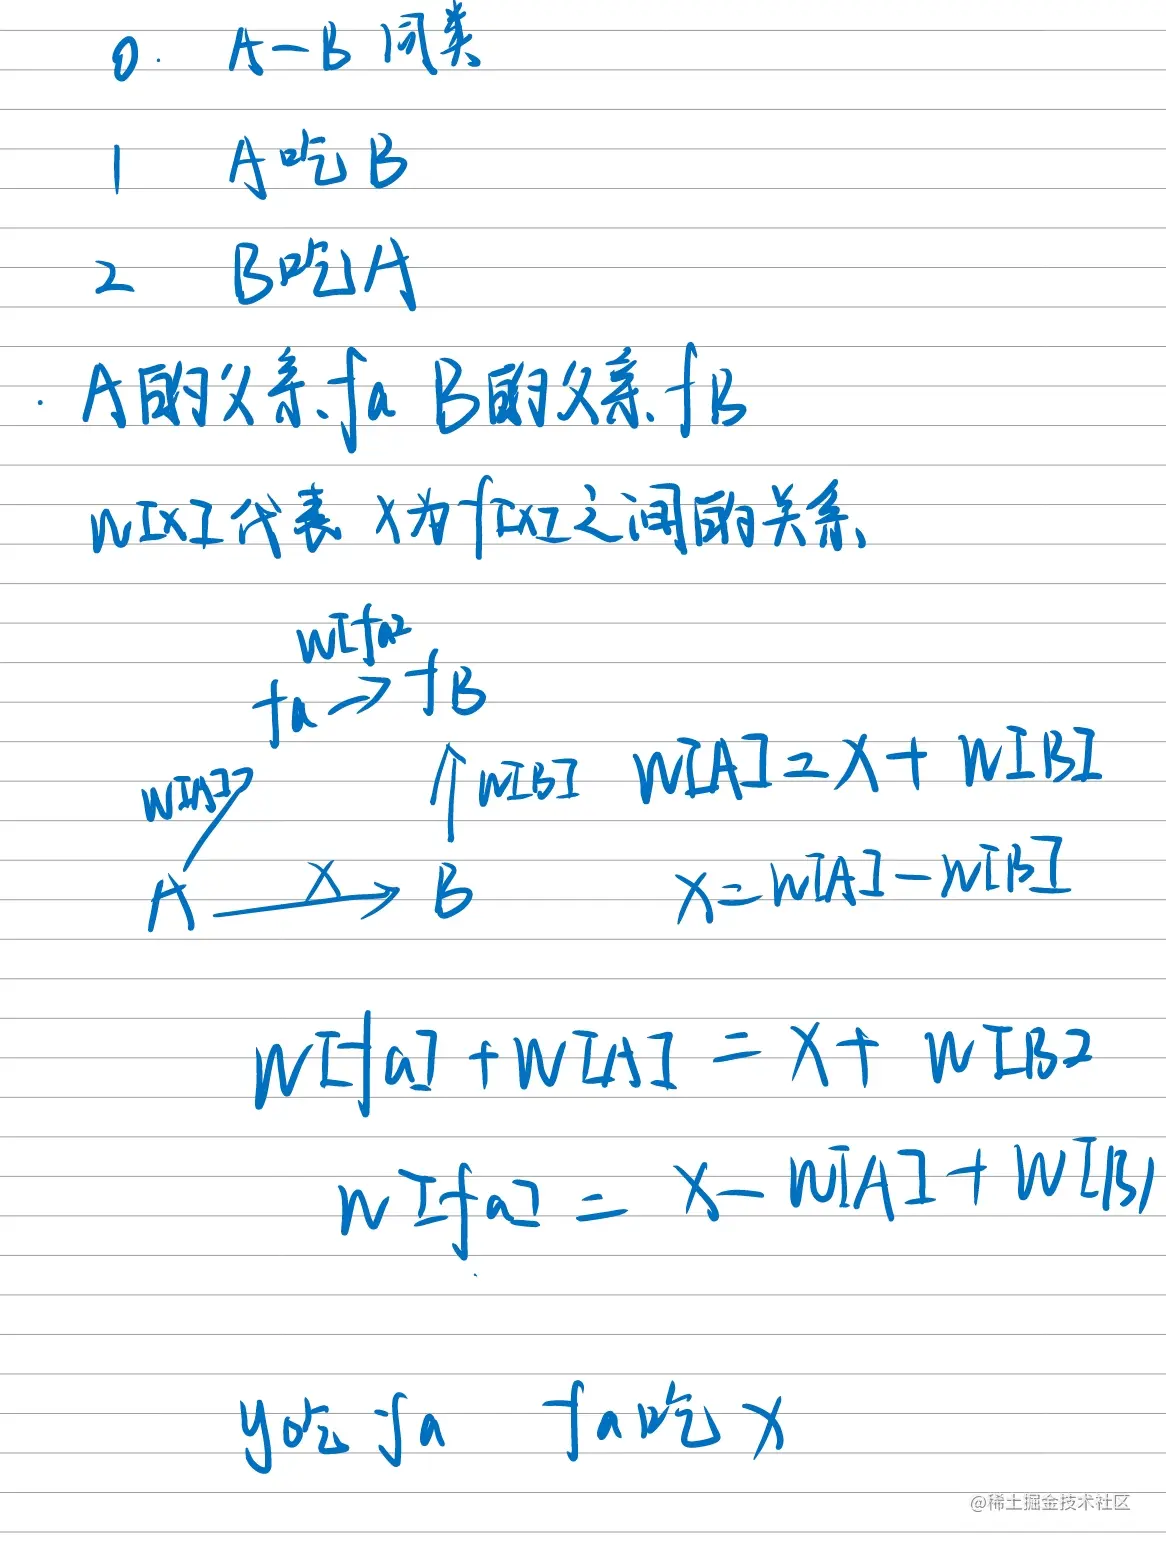 0. A-B 同类
1 A吃B
2 B吃A
A的父亲fa B的父亲fB
W[X]代表 X为f[X]之间的关系
W[fa]
fa → fB
W[A] W[B] W[A] = X + W[B]
A X → B X = W[A] - W[B]
W[fa] + W[A] = X + W[B]
W[fa] = X - W[A] + W[B]
y吃fa fa吃X
@稀土掘金技术社区